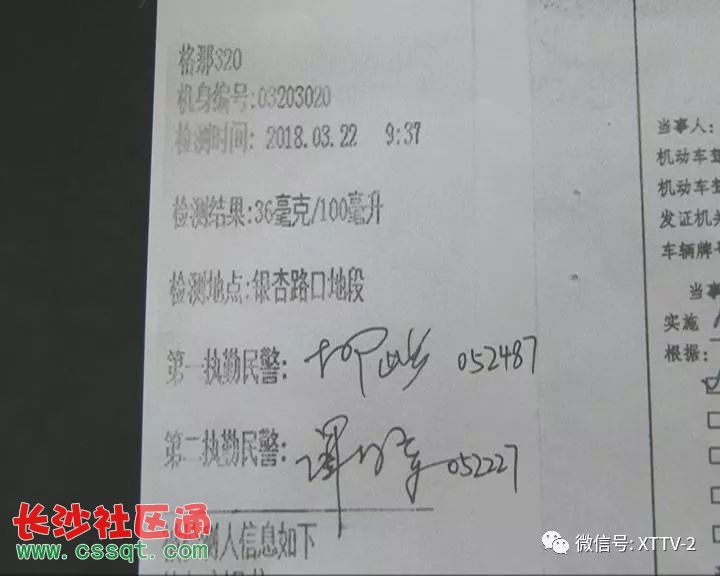 格那320
机身编号:03203020
检测时间: 2018.03.22 9:37
检测结果:36毫克/100毫升
检测地点:银杏路口地段
第一执勤民警: 052487
第二执勤民警: 052227
测人信息如下
当事人:
机动车驾
机动车
发证机关
车辆牌号
当事
实施
根据:
长沙社区通
www.cssqt.com
微信号: XTTV-2